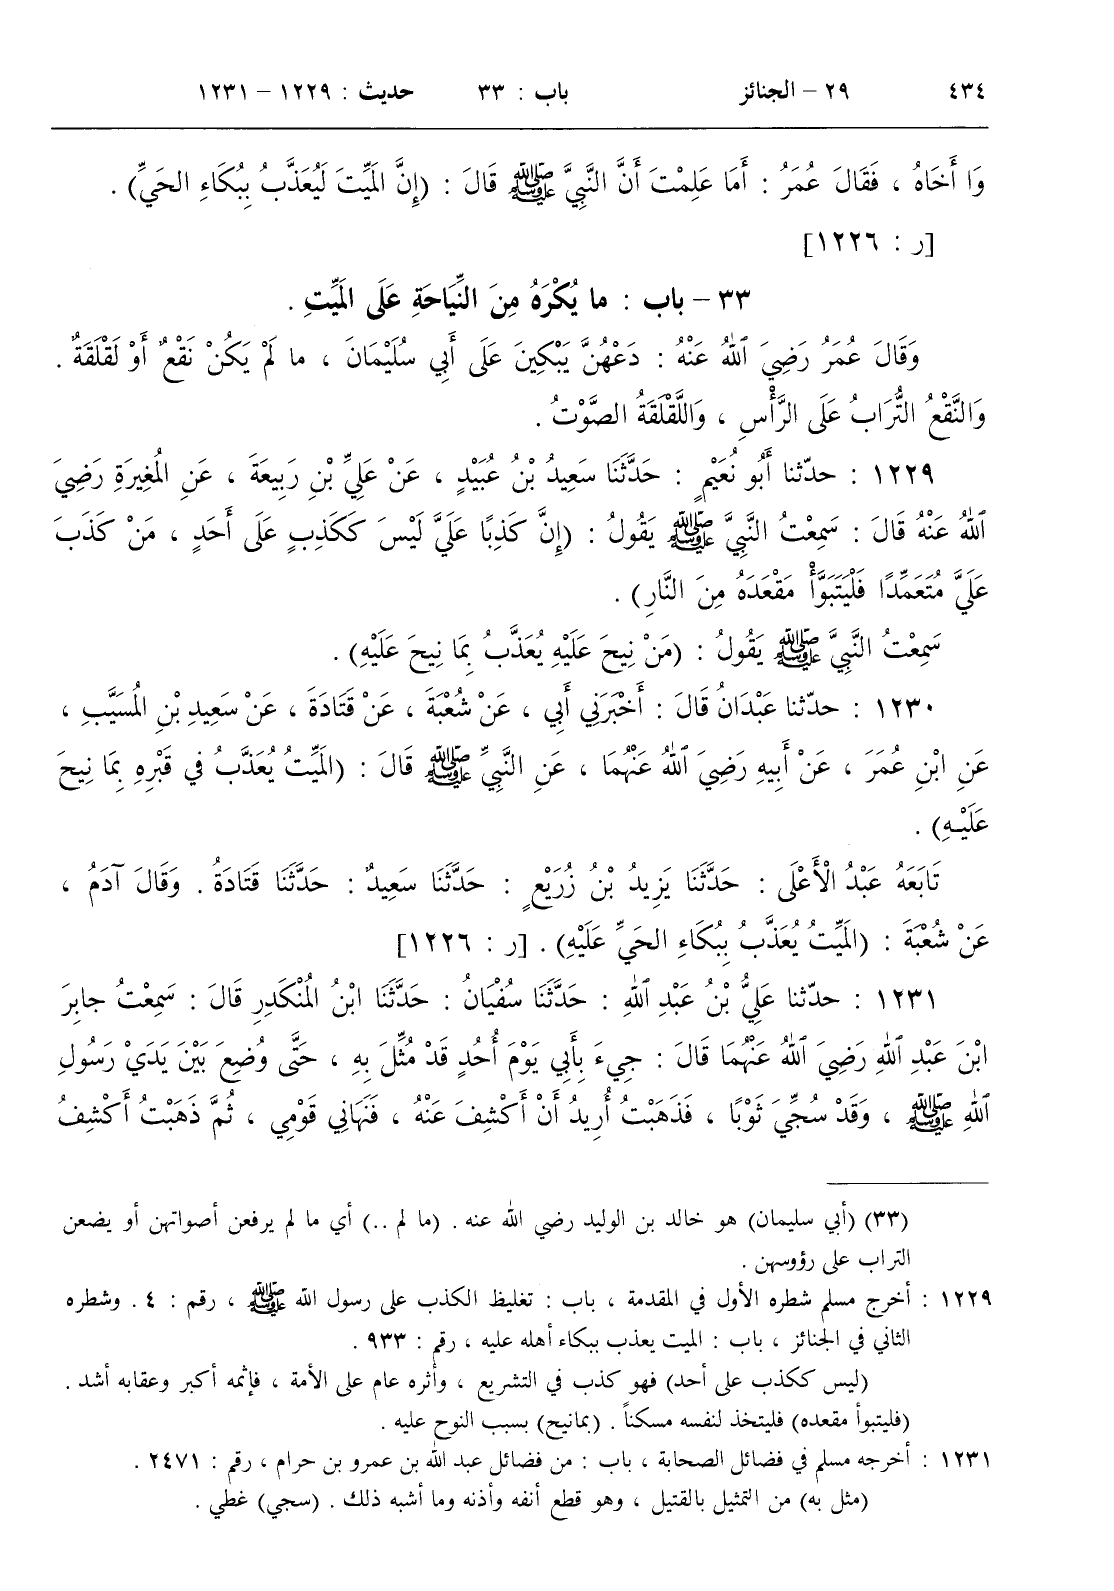 ٤٣٤ ٢٩ – الجنائز باب : ٣٣ حديث : ١٢٢٩ – ١٢٣١
وَا أَخَاهُ ، فَقَالَ عُمَرُ : أَمَا عَلِمْتَ أَنَّ النَّبِيَّ ﷺ قَالَ : (إِنَّ المَيِّتَ لَيُعَذَّبُ بِبُكَاءِ الحَيِّ) .
[ر : ١٢٢٦]
٣٣ – باب : ما يُكْرَهُ مِنَ النِّيَاحَةِ عَلَى المَيِّتِ .
وَقَالَ عُمَرُ رَضِيَ ٱللهُ عَنْهُ : دَعْهُنَّ يَبْكِينَ عَلَى أَبِي سُلَيْمَانَ ، ما لَمْ يَكُنْ نَقْعٌ أَوْ لَقْلَقَةٌ .
وَالنَّقْعُ التُّرَابُ عَلَى الرَّأْسِ ، وَاللَّقْلَقَةُ الصَّوْتُ .
١٢٢٩ : حدّثنا أَبُو نُعَيْمٍ : حَدَّثَنَا سَعِيدُ بْنُ عُبَيْدٍ ، عَنْ عَلِيِّ بْنِ رَبِيعَةَ ، عَنِ المُغِيرَةِ رَضِيَ
ٱللهُ عَنْهُ قَالَ : سَمِعْتُ النَّبِيَّ ﷺ يَقُولُ : (إِنَّ كَذِبًا عَلَيَّ لَيْسَ كَكَذِبٍ عَلَى أَحَدٍ ، مَنْ كَذَبَ
عَلَيَّ مُتَعَمِّدًا فَلْيَتَبَوَّأْ مَقْعَدَهُ مِنَ النَّارِ) .
سَمِعْتُ النَّبِيَّ ﷺ يَقُولُ : (مَنْ نِيحَ عَلَيْهِ يُعَذَّبُ بِمَا نِيحَ عَلَيْهِ) .
١٢٣٠ : حدّثنا عَبْدَانُ قَالَ : أَخْبَرَنِي أَبِي ، عَنْ شُعْبَةَ ، عَنْ قَتَادَةَ ، عَنْ سَعِيدِ بْنِ المُسَيَّبِ ،
عَنِ ابْنِ عُمَرَ ، عَنْ أَبِيهِ رَضِيَ ٱللهُ عَنْهُمَا ، عَنِ النَّبِيِّ ﷺ قَالَ : (المَيِّتُ يُعَذَّبُ في قَبْرِهِ بِمَا نِيحَ
عَلَيْهِ) .
تَابَعَهُ عَبْدُ الْأَعْلَى : حَدَّثَنَا يَزِيدُ بْنُ زُرَيْعٍ : حَدَّثَنَا سَعِيدٌ : حَدَّثَنَا قَتَادَةُ . وَقَالَ آدَمُ ،
عَنْ شُعْبَةَ : (المَيِّتُ يُعَذَّبُ بِبُكَاءِ الحَيِّ عَلَيْهِ) . [ر : ١٢٢٦]
١٢٣١ : حدّثنا عَلِيُّ بْنُ عَبْدِ ٱللهِ : حَدَّثَنَا سُفْيَانُ : حَدَّثَنَا ابْنُ المُنْكَدِرِ قَالَ : سَمِعْتُ جابِرَ
ابْنَ عَبْدِ ٱللهِ رَضِيَ ٱللهُ عَنْهُمَا قَالَ : جِيءَ بِأَبِي يَوْمَ أُحُدٍ قَدْ مُثِّلَ بِهِ ، حَتَّى وُضِعَ بَيْنَ يَدَيْ رَسُولِ
ٱللهِ ﷺ ، وَقَدْ سُجِّيَ ثَوْبًا ، فَذَهَبْتُ أُرِيدُ أَنْ أَكْشِفَ عَنْهُ ، فَنَهَانِي قَوْمِي ، ثُمَّ ذَهَبْتُ أَكْشِفُ
(٣٣) (أبي سليمان) هو خالد بن الوليد رضي الله عنه . (ما لم ..) أي ما لم يرفعن أصواتهن أو يضعن
التراب على رؤوسهن .
١٢٢٩ : أخرج مسلم شطره الأول في المقدمة ، باب : تغليظ الكذب على رسول الله ﷺ ، رقم : ٤ . وشطره
الثاني في الجنائز ، باب : الميت يعذب ببكاء أهله عليه ، رقم : ٩٣٣ .
(ليس ككذب على أحد) فهو كذب في التشريع ، وأثره عام على الأمة ، فإثمه أكبر وعقابه أشد .
(فليتبوأ مقعده) فليتخذ لنفسه مسكناً . (بمانيح) بسبب النوح عليه .
١٢٣١ : أخرجه مسلم في فضائل الصحابة ، باب : من فضائل عبد الله بن عمرو بن حرام ، رقم : ٢٤٧١ .
(مثل به) من التمثيل بالقتيل ، وهو قطع أنفه وأذنه وما أشبه ذلك . (سجي) غطي .